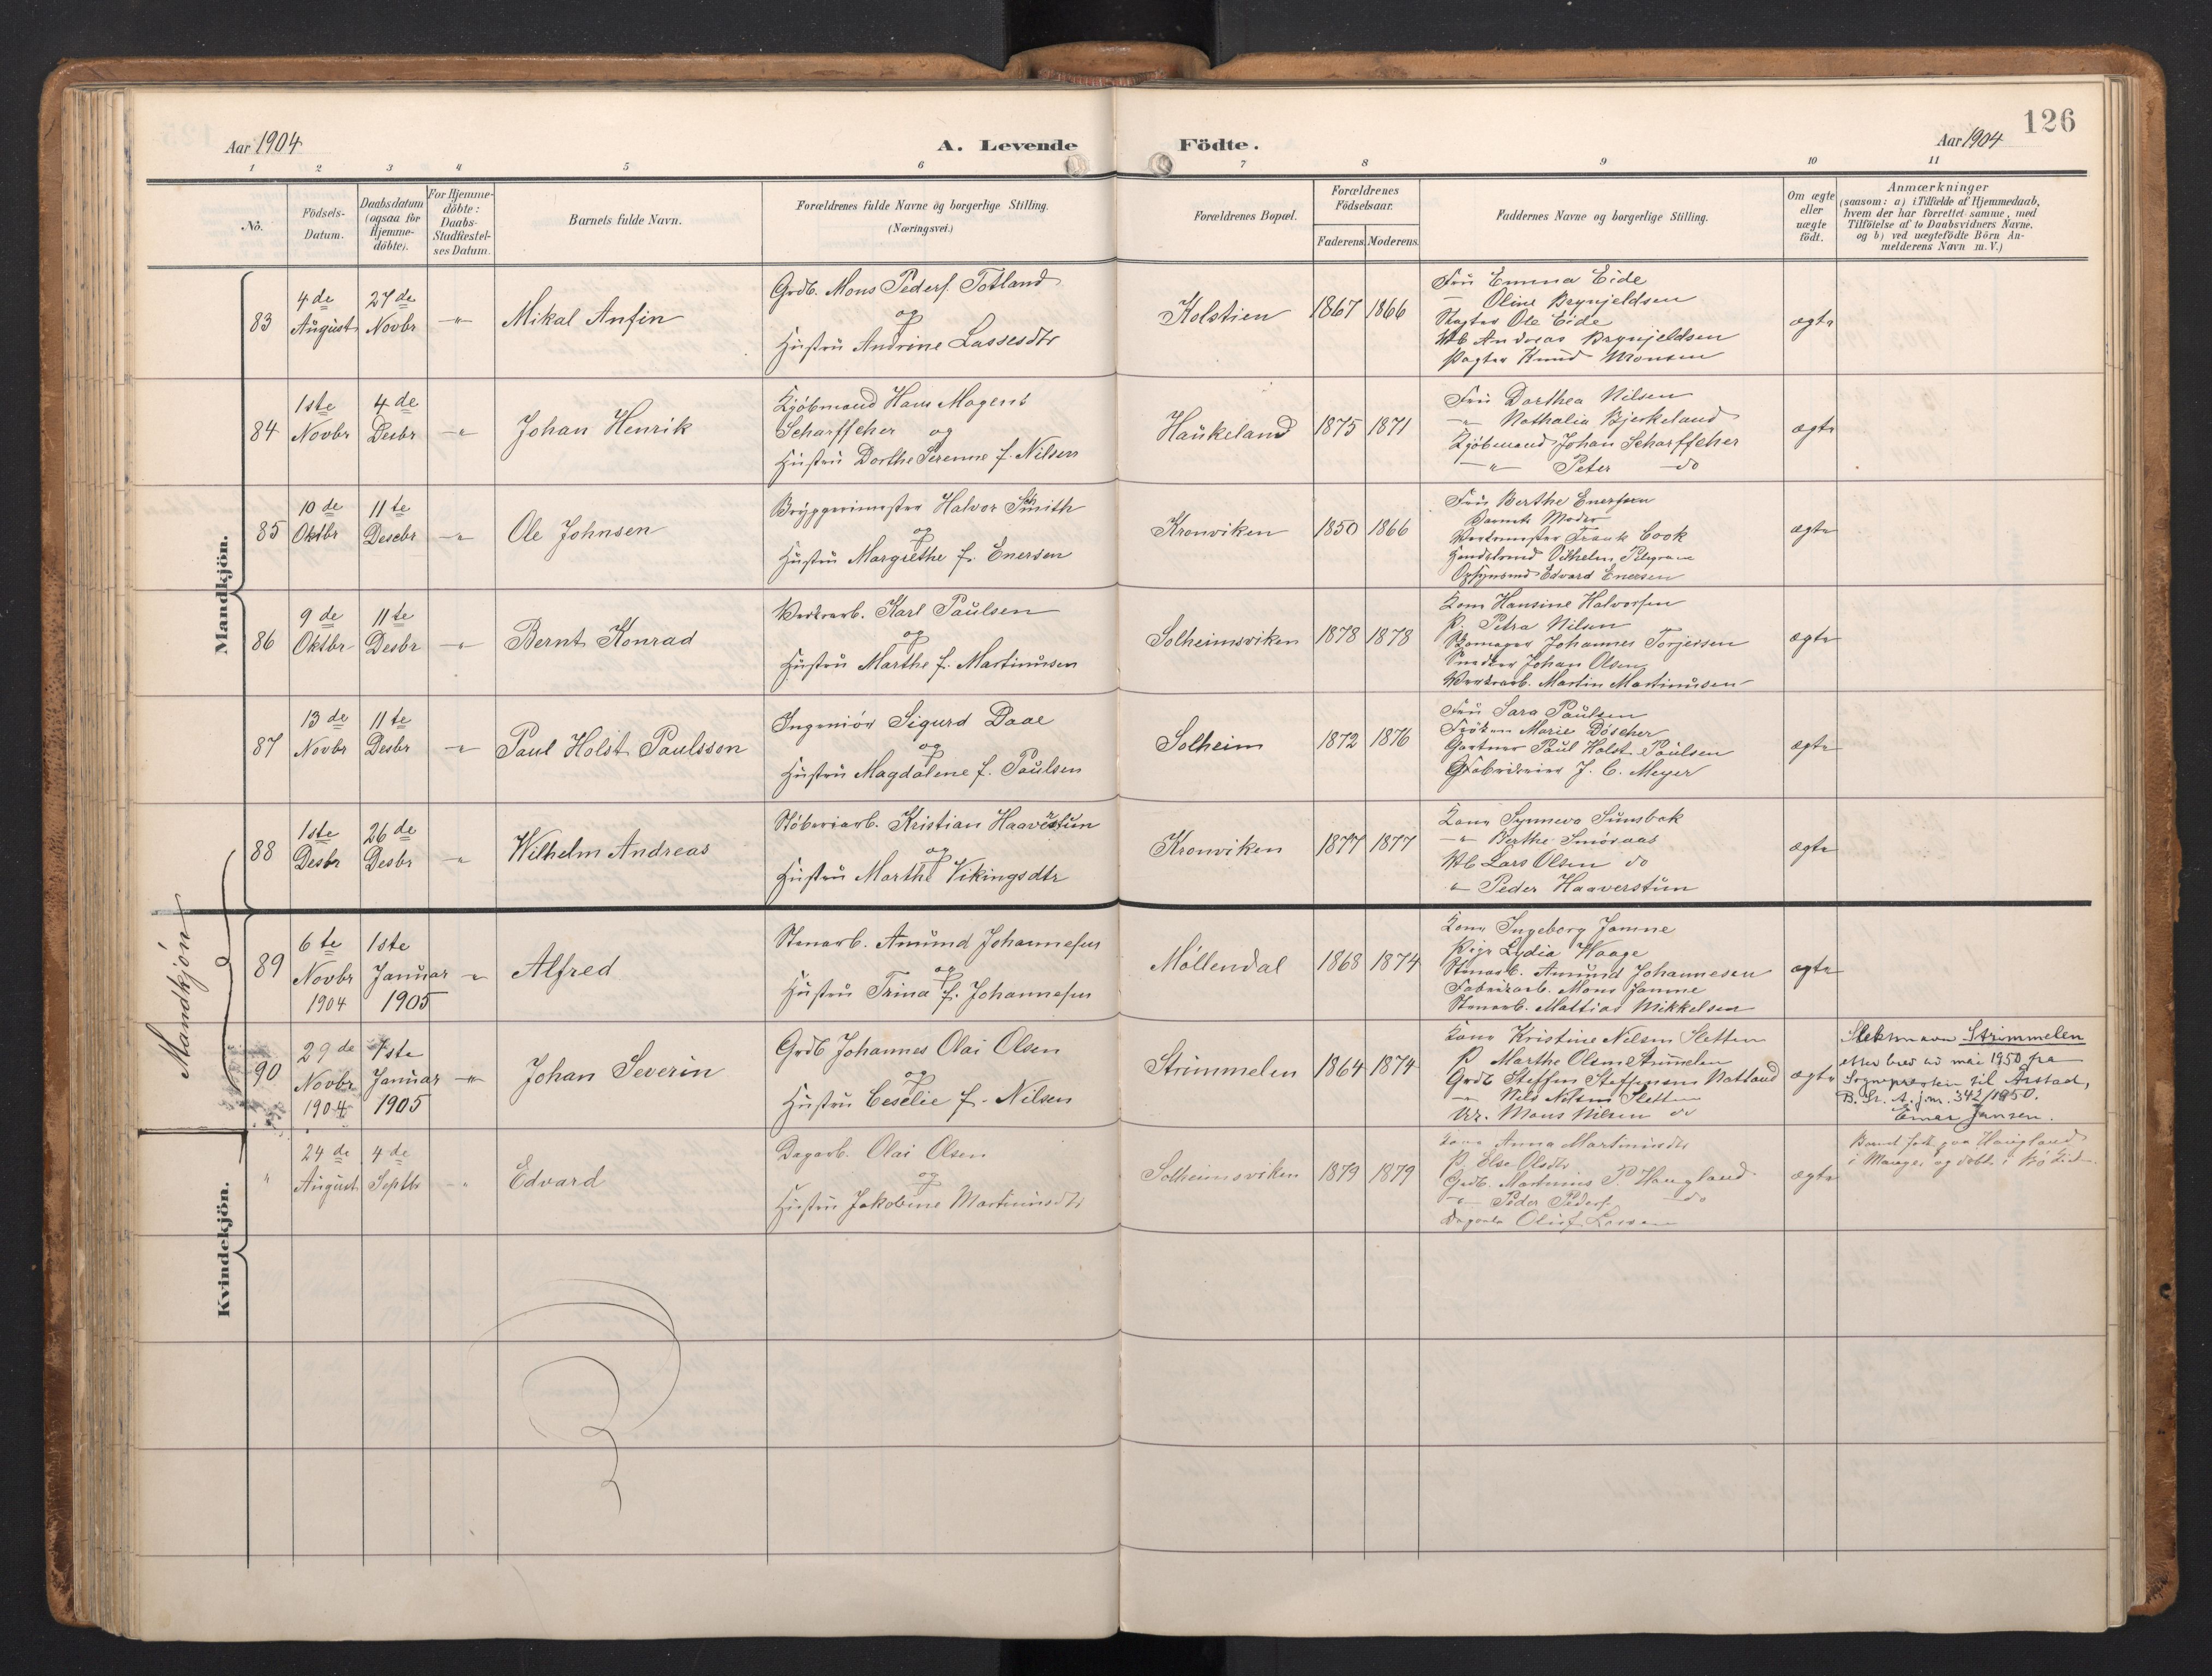 126
Aar 1904
A. Levende Födte.
Aar 1904
1 2 3 4 5 6 7 8 9 10 11
Nö.
Födsels-
Datum.
Daabsdatum
(ogsaa för
Hjemme-
döbte).
For Hjemme-
döbte:
Daabs-
Stadfæstel-
ses Datum.
Barnets fulde Navn.
Forældrenes fulde Navne og borgerlige Stilling.
(Næringsvei.)
Forældrenes Bopæl.
Forældrenes
Födselsaar.
Faderens. Moderens.
Faddernes Navne og borgerlige Stilling.
Om ægte
eller
uægte
födt.
Anmærkninger
(saasom: a) i Tilfælde af Hjemmedaab,
hvem der har forrettet samme, med
Tilföielse af to Daabsvidners Navne.
og b) ved uægtefödte Börn An-
melderens Navn m. V.)
Mandkjön.
83
4de
August
27de
Novbr
Mikal Anfin
Grdb. Mons Peders. Totland
og
Hustru Andrine Lassesdtr
Kolstien
1867 1866
Fru Emma Eide
Oline Brynjeldsen
Ole Eide
Andreas Brynjeldsen
Knud Monsen
ægte
84
1ste
Novbr
4de
Desbr
Johan Henrik
Kjöbmand Hans Mogens
Scharffcher og
Hustru Dorthe Serenne f. Nilsen
Haukeland
1875 1871
Fru Dorthea Nilsen
" Nathalia Bjerkeland
Kjöbmand Johan Scharffcher
" Peter do
ægte
85
10de
Oktbr
11te
Desebr
Ole Johnsen
Bryggerimester Halvor Smith
og
Hustru Margrethe f. Enersen
Kronviken
1850 1866
Fru Berthe Enersen
Barnets Moder
Verkmester Frank Cook
Vilhelm
Edvard Enersen
ægte
86
9de
Oktbr
11te
Desbr
Bernt Konrad
Verksarb. Karl Paulsen
og
Hustru Marthe f. Martinusen
Solheimsviken
1878 1878
Kone Hansine Halvorsen
P. Petra Nilsen
Skomager Johannes Torjersen
Snedker Johan Olsen
Verksarb. Martin Martinusen
ægte
87
13de
Novbr
11te
Desbr
Paul Holst Paulsson
Ingeniör Sigurd Daae
og
Hustru Magdalene f. Paulsen
Solheim
1872 1876
Fru Sara Paulsen
Fröken Marie Döscher
Gartner Paul Holst Paulsen
J. C. Meyer
ægte
88
1ste
Desbr
26de
Desbr
Wilhelm Andreas
Stöberiarb. Kristian Haaverstun
og
Hustru Marthe Vikingsdtr
Kronviken
1877 1877
Kone Synneva Sunsbak
" Berthe Smöraas
Lars Olsen do
" Peder Haaverstun
ægte
Mandkjön
89
6te
Novbr
1904
1ste
Januar
1905
Alfred
Stenarb. Amund Johannesen
og
Hustru Trina f. Johannesen
Möllendal
1868 1874
Kone Ingeborg Jamne
Pige Lydia Waage
Stenarb. Amund Johannesen
Fabrikarb. Mons Jamne
Stenarb. Mattias Mikkelsen
ægte
90
29de
Novbr
1904
1ste
Januar
1905
Johan Severin
Grdb Johannes Olai Olsen
og
Hustru Ceselie f. Nilsen
Strimmelen
1864 1874
Kone Kristine Nilsen Sletten
P. Marthe Olsen Strimmelen
Grdb Steffen Steffensen Natland
" Nils Nilsen Sletten
Mons Nilsen do
ægte
Slektsnavn Strimmelen
etter brev av mai 1950 fra
Sognepresten til Årstad,
B. St. A. j.nr. 342/1950.
Einar Jansen.
Kvindekjön.
"
24de
August
4de
Septb
Edvard
Dagarb. Olai Olsen
og
Hustru Jakobine Martinusdtr
Solheimsviken
1879 1879
Kone Anna Martinusdtr
P. Else Olsdtr
Grdb. Martinus P. Haugland
" Peder Peders. do
Dagarb Oluf
ægte
Barnet født paa Haugland
i Manger og døbt i Bö